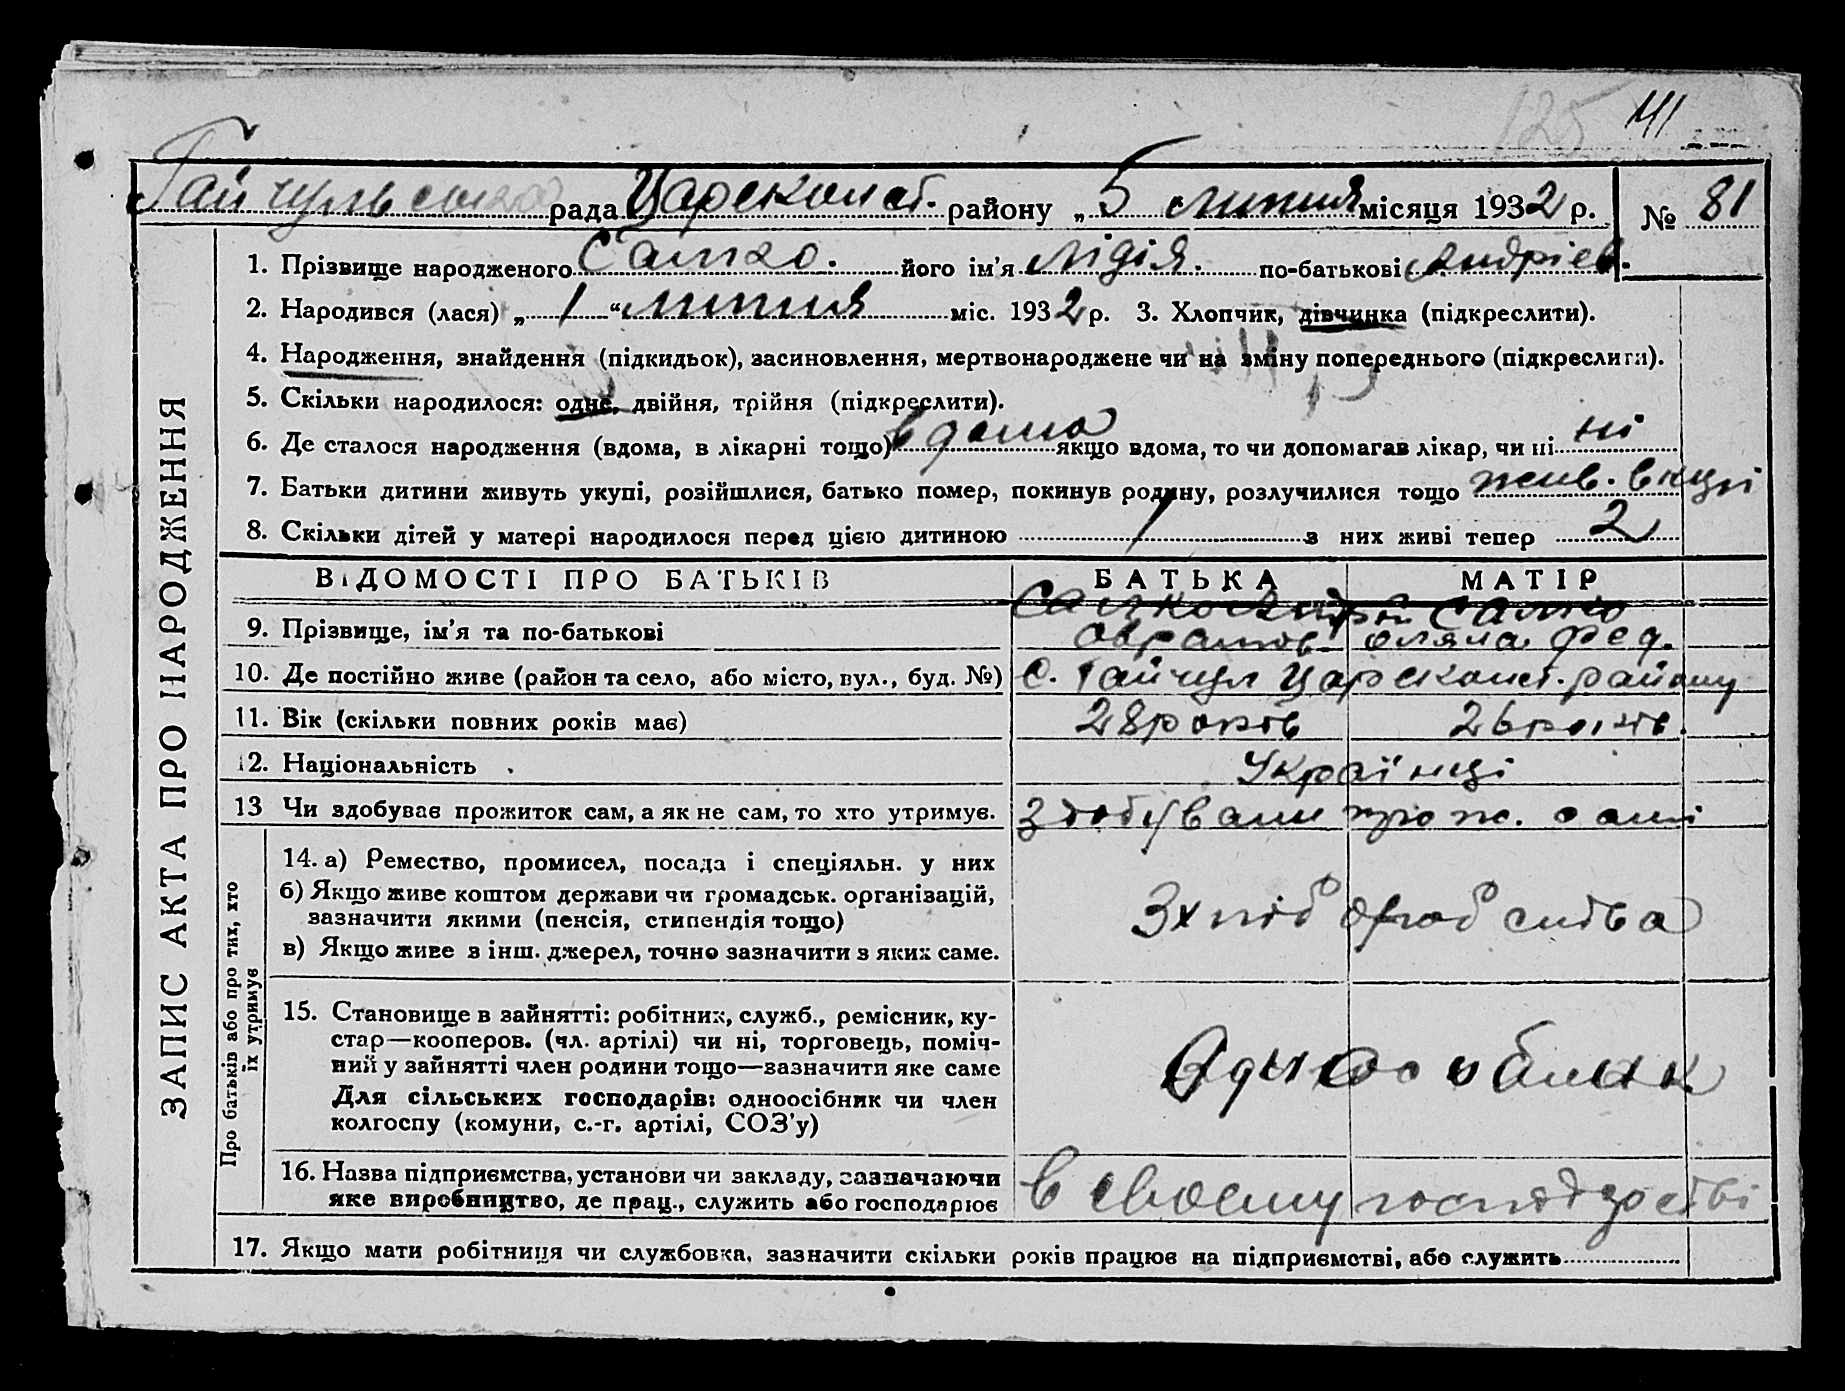 125 141
Гайчульська рада Царсконст. району „ 5 липня місяця 1932 р. № 81
1. Прізвище народженого Салко. його ім'я Лідія. по-батькові Андріев.
2. Народився (лася) „ 1 “ липня міс. 1932 р. 3. Хлопчик, дівчинка (підкреслити).
4. Народження, знайдення (підкидьок), засиновлення, мертвонароджене чи на зміну попереднього (підкреслити).
5. Скільки народилося: одне, двійня, трійня (підкреслити).
6. Де сталося народження (вдома, в лікарні тощо) вдома якщо вдома, то чи допомагав лікар, чи ні ні
7. Батьки дитини живуть укупі, розійшлися, батько помер, покинув родину, розлучилися тощо жив. вкупі
8. Скільки дітей у матері народилося перед цією дитиною 1 з них живі тепер 2
ЗАПИС АКТА ПРО НАРОДЖЕННЯ
ВІДОМОСТІ ПРО БАТЬКІВ БАТЬКА МАТІР
Салко Андрій Салко
9. Прізвище, ім'я та по-батькові Оврамов. Оляна Фед.
10. Де постійно живе (район та село, або місто, вул., буд. №) с. Гайчул Царсконст. району
11. Вік (скільки повних років має) 28 років 26 років.
12. Національність Українці
13 Чи здобуває прожиток сам, а як не сам, то хто утримує. здобували прож. самі
Про батьків або про тих, хто їх утримує
14. а) Ремество, промисел, посада і спеціяльн. у них
б) Якщо живе коштом держави чи громадськ. організацій,
зазначити якими (пенсія, стипендія тощо)
З хліборобства
в) Якщо живе з інш. джерел, точно зазначити з яких саме.
15. Становище в зайнятті: робітник, служб., ремісник, ку-
стар—кооперов. (чл. артілі) чи ні, торговець, поміч-
ний у зайнятті член родини тощо—зазначити яке саме
Для сільських господарів: одноосібник чи член
колгоспу (комуни, с.-г. артілі, СОЗ'у)
16. Назва підприємства, установи чи закладу, зазначаючи
яке виробництво, де прац., служить або господарює
в своєму господарстві
17. Якщо мати робітниця чи службовка, зазначити скільки років працює на підприємстві, або служить